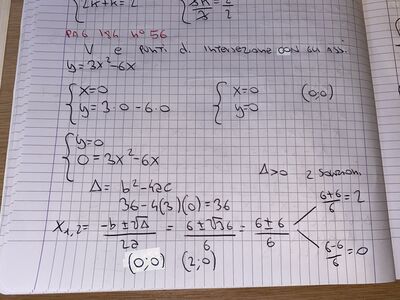 2x+x=2 3x/3 = 2/2
PAG 186 n° 56
V e punti di intersezione con gli assi
y=3x²-6x
{x=0 {x=0 (0;0)
{y=3·0-6·0 {y=0
{y=0
{0=3x²-6x
Δ= b²-4ac Δ>0 2 soluzioni
36-4(3)(0)=36
x₁,₂= (-b±√Δ)/2a = (6±√36)/6 = (6±6)/6
(6+6)/6 = 2
(6-6)/6 = 0
(0;0) (2;0)